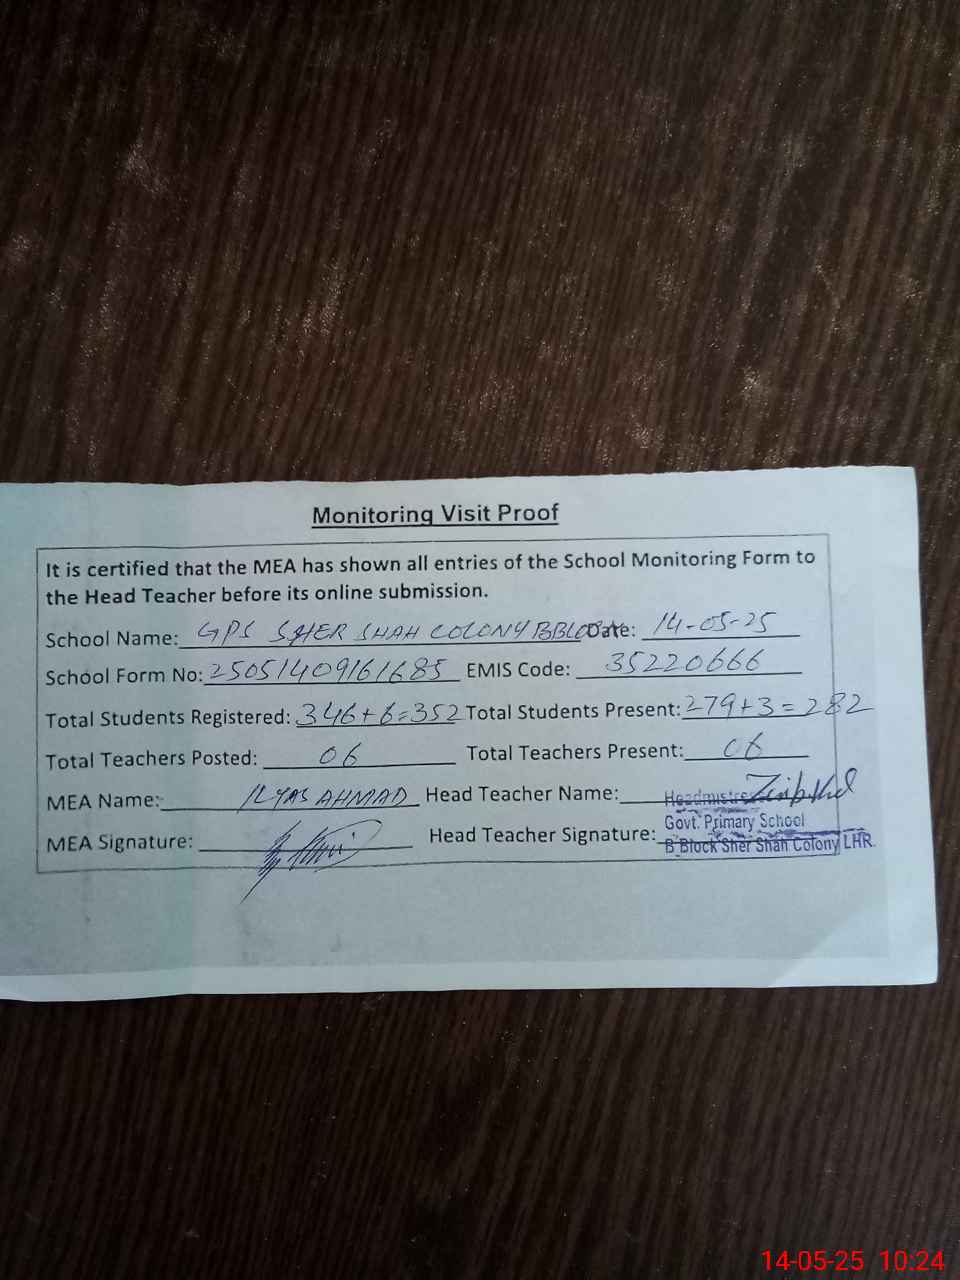 Monitoring Visit Proof
It is certified that the MEA has shown all entries of the School Monitoring Form to
the Head Teacher before its online submission.
School Name: GPS SHER SHAH COLONY B BLOCK Date: 14-05-25
School Form No: 25051409161685 EMIS Code: 35220666
Total Students Registered: 346+6=352 Total Students Present: 279+3=282
Total Teachers Posted: 06 Total Teachers Present: 06
MEA Name: ILYAS AHMAD Head Teacher Name: Headmistress
Govt. Primary School
MEA Signature: Head Teacher Signature: B Block Sher Shah Colony LHR.
14-05-25 10:24